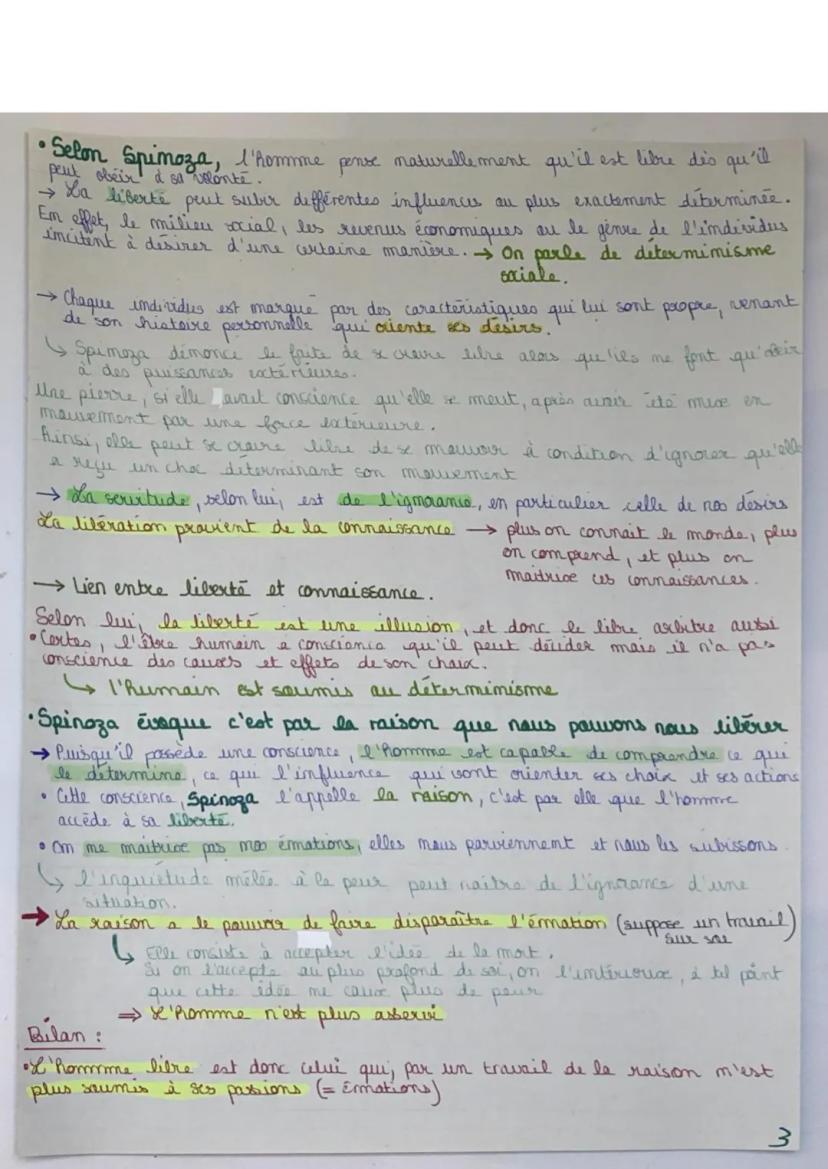 • Selon Spinoza, l'homme pense naturellement qu'il est libre dès qu'il
peut obéir à sa volonté.
→ La liberté peut subir différentes influences ou plus exactement déterminée.
En effet, le milieu social, les revenus économiques ou le genre de l'individus
incitent à désirer d'une certaine manière. → On parle de déterminisme
sociale.
→ Chaque individus est marqué par des caractéristiques qui lui sont propre, venant
de son histoire personnelle qui oriente ses désirs.
↳ Spinoza dénonce le faite de se croire libre alors qu'ils ne font qu'obéir
à des puissances extérieures.
Une pierre, si elle avait conscience qu'elle se meut, après avoir été muse en
mouvement par une force extérieure.
Ainsi, elle peut se croire libre de se mouvoir à condition d'ignorer qu'elle
a reçu un choc déterminant son mouvement
→ La servitude, selon lui, est de l'ignorance, en particulier celle de nos désirs
La libération provient de la connaissance → plus on connait le monde, plus
on comprend, et plus on
maitrise ces connaissances.
→ Lien entre liberté et connaissance.
Selon lui, la liberté est une illusion, et donc le libre arbitre aussi
• Certes, l'être humain a conscience qu'il peut décider mais il n'a pas
conscience des causes et effets de son choix.
↳ l'humain est soumis au déterminisme
• Spinoza évoque c'est par la raison que nous pouvons nous libérer
→ Puisqu'il possède une conscience, l'homme est capable de comprendre ce qui
le détermine, ce qui l'influence qui vont orienter ses choix et ses actions
• Cette conscience, Spinoza l'appelle la raison, c'est par elle que l'homme
accède à sa liberté.
• On ne maitrise pas nos émotions, elles nous parviennent et nous les subissons.
↳ l'inquiétude mêlée à la peur peut naitre de l'ignorance d'une
situation.
→ La raison a le pouvoir de faire disparaître l'émotion (suppose un travail)
sur soi
↳ Elle consiste à accepter l'idée de la mort.
Si on l'accepte au plus profond de soi, on l'intériorise, à tel point
que cette idée ne cause plus de peur
⇒ L'homme n'est plus asservi
Bilan :
• L'homme libre est donc celui qui, par un travail de la raison n'est
plus soumis à ses passions (= émotions)
3